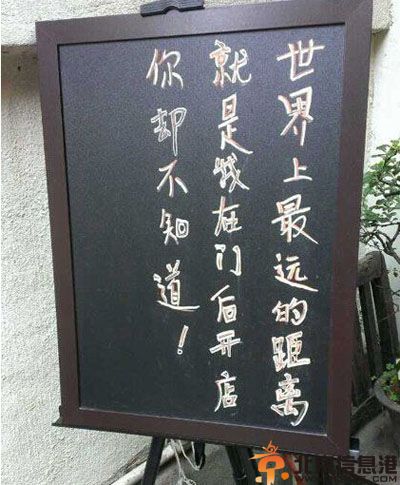 世界上最远的距离
就是我在门后开店
你却不知道！
北京信息港